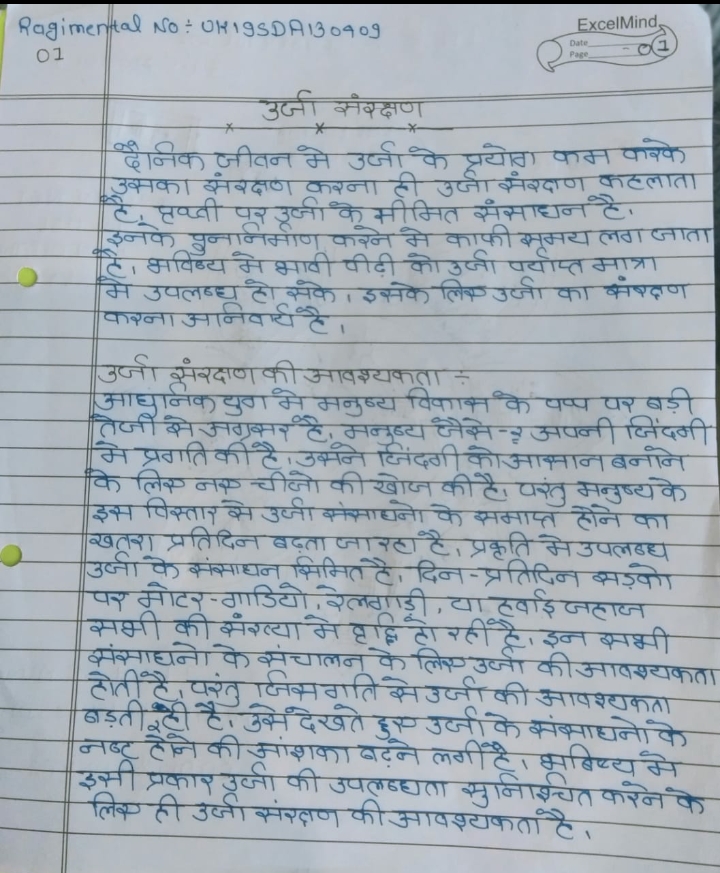 Ragimental No:- UK19SDA130409
01
ExcelMind
Date
Page 01
उर्जा संरक्षण
दैनिक जीवन मे उर्जा के प्रयोग कम करके
उसका संरक्षण करना ही उर्जा संरक्षण कहलाता
है, पृथ्वी पर उर्जा के सीमित संसाधन है,
इनके पुनर्निर्माण करने मे काफी समय लग जाता
है, भविष्य मे भावी पीढ़ी को उर्जा पर्याप्त मात्रा
मे उपलब्ध हो सके, इसके लिए उर्जा का संरक्षण
करना अनिवार्य है,
उर्जा संरक्षण की आवश्यकता :-
आधुनिक युग मे मनुष्य विकास के पथ पर बड़ी
तेजी से अग्रसर है, मनुष्य जैसे-२ अपनी जिंदगी
मे प्रगति की है, उसने जिंदगी को आसान बनाने
के लिए नए चीजो की खोज की है, परंतु मनुष्य के
इस विस्तार से उर्जा संसाधनो के समाप्त होने का
खतरा प्रतिदिन बढ़ता जा रहा है, प्रकृति मे उपलब्ध
उर्जा के संसाधन सिमित है, दिन-प्रतिदिन सड़को
पर मोटर-गाडियो, रेलगाड़ी, या हवाई जहाज
सभी की संख्या मे वृद्धि हो रही है, इन सभी
संसाधनो के संचालन के लिए उर्जा की आवश्यकता
होती है, परंतु जिस गति से उर्जा की आवश्यकता
बड़ती रही है, उसे देखते हुए उर्जा के संसाधनो के
नष्ट होने की आंशका बढ़ने लगी है, भविष्य मे
इसी प्रकार उर्जा की उपलब्धता सुनिश्चित करने के
लिए ही उर्जा संरक्षण की आवश्यकता है,